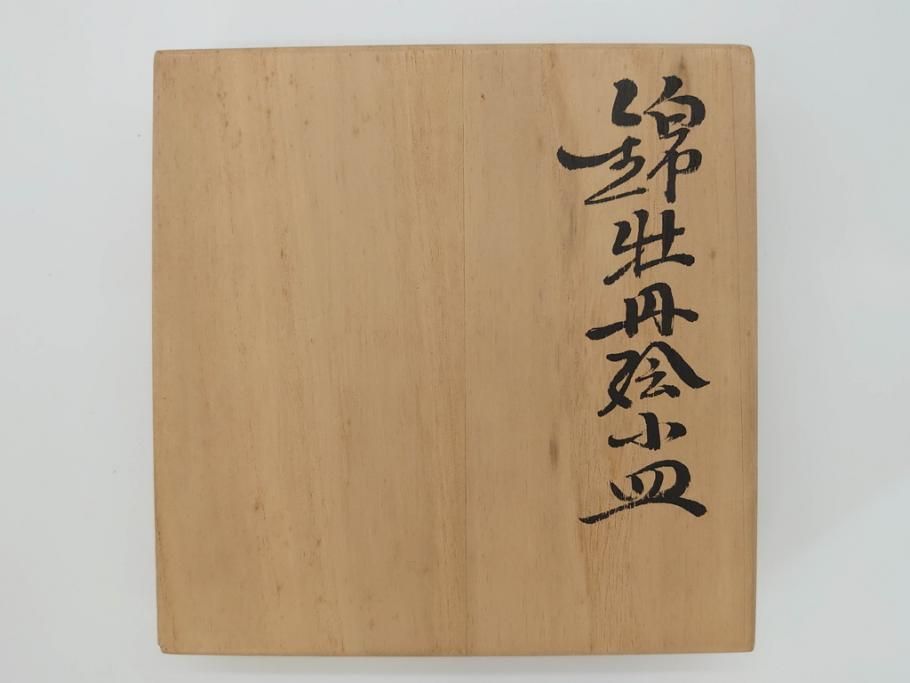 錦牡丹絵小皿